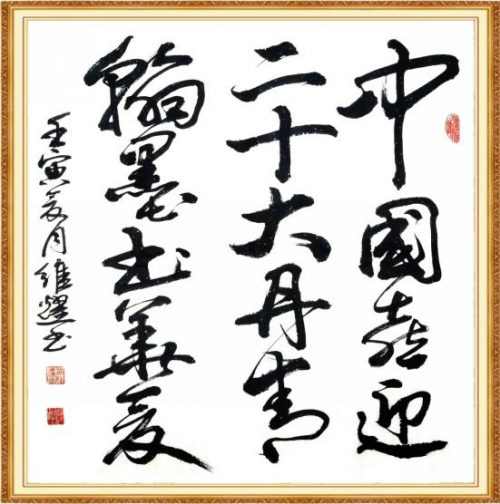 中國喜迎
二十大丹青
翰墨書華夏
壬寅夏月維耀書